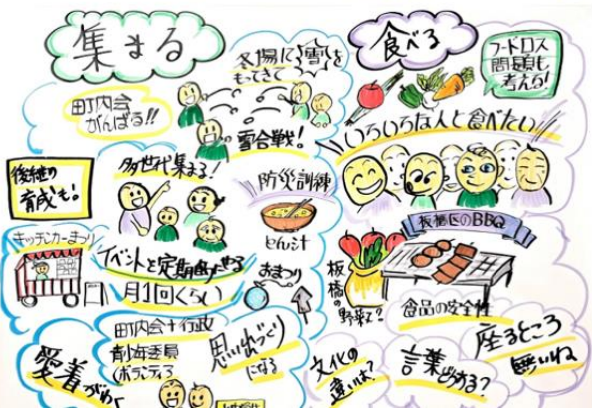 集まる
冬場に雪を
もってきて
町内会
がんばる!!
雪合戦!
後継の
育成も!
多世代集まる!
防災訓練
とん汁
キッチンカーまつり
イベントを定期的にやる
月1回くらい
おまつり
町内会+行政
青少年委員
ボランティア
思い出づくり
になる
愛着がわく
食べる
フードロス
問題も
考える!
いろいろな人と食べたい
板橋区のBBQ
板橋の
野菜?
食品の安全性
座るところ
無いね
文化の
違いは?
言葉どうする?